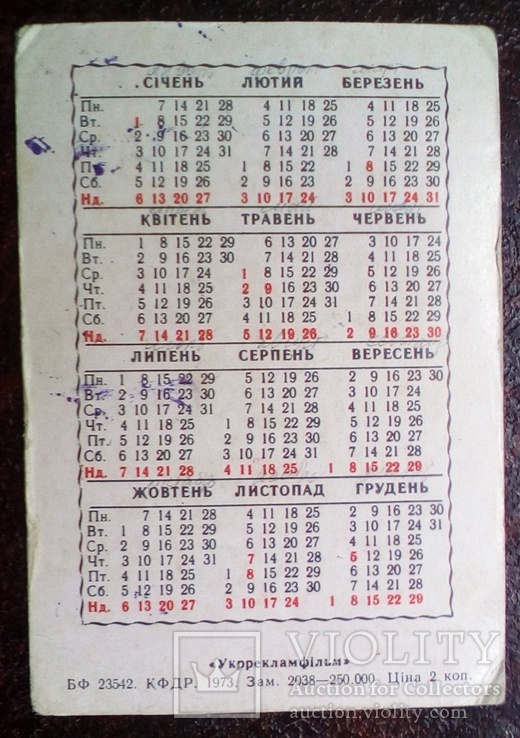 СІЧЕНЬ ЛЮТИЙ БЕРЕЗЕНЬ
Пн. 7 14 21 28 4 11 18 25 4 11 18 25
Вт. 1 8 15 22 29 5 12 19 26 5 12 19 26
Ср. 2 9 16 23 30 6 13 20 27 6 13 20 27
Чт. 3 10 17 24 31 7 14 21 28 7 14 21 28
Пт. 4 11 18 25 1 8 15 22 1 8 15 22 29
Сб. 5 12 19 26 2 9 16 23 2 9 16 23 30
Нд. 6 13 20 27 3 10 17 24 3 10 17 24 31
КВІТЕНЬ ТРАВЕНЬ ЧЕРВЕНЬ
Пн. 1 8 15 22 29 6 13 20 27 3 10 17 24
Вт. 2 9 16 23 30 7 14 21 28 4 11 18 25
Ср. 3 10 17 24 1 8 15 22 29 5 12 19 26
Чт. 4 11 18 25 2 9 16 23 30 6 13 20 27
Пт. 5 12 19 26 3 10 17 24 31 7 14 21 28
Сб. 6 13 20 27 4 11 18 25 1 8 15 22 29
Нд. 7 14 21 28 5 12 19 26 2 9 16 23 30
ЛИПЕНЬ СЕРПЕНЬ ВЕРЕСЕНЬ
Пн. 1 8 15 22 29 5 12 19 26 2 9 16 23 30
Вт. 2 9 16 23 30 6 13 20 27 3 10 17 24
Ср. 3 10 17 24 31 7 14 21 28 4 11 18 25
Чт. 4 11 18 25 1 8 15 22 29 5 12 19 26
Пт. 5 12 19 26 2 9 16 23 30 6 13 20 27
Сб. 6 13 20 27 3 10 17 24 31 7 14 21 28
Нд. 7 14 21 28 4 11 18 25 1 8 15 22 29
ЖОВТЕНЬ ЛИСТОПАД ГРУДЕНЬ
Пн. 7 14 21 28 4 11 18 25 2 9 16 23 30
Вт. 1 8 15 22 29 5 12 19 26 3 10 17 24 31
Ср. 2 9 16 23 30 6 13 20 27 4 11 18 25
Чт. 3 10 17 24 31 7 14 21 28 5 12 19 26
Пт. 4 11 18 25 1 8 15 22 29 6 13 20 27
Сб. 5 12 19 26 2 9 16 23 30 7 14 21 28
Нд. 6 13 20 27 3 10 17 24 1 8 15 22 29
«Укррекламфільм»
БФ 23542. КФДР. 1973. Зам. 2038—250.000. Ціна 2 коп.
VIOLITY
Auction for Collectors
auction.violity.com